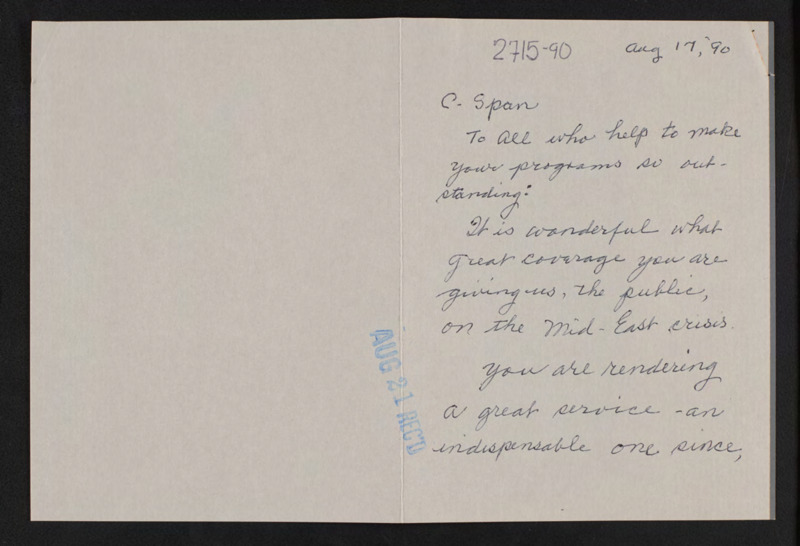 2715-90
Aug 17, '90
C-Span
To All who help to make
your programs so out-
standing:
It is wonderful what
great coverage you are
giving us, the public,
on the Mid-East crisis.
You are rendering
a great service - an
indispensable one since,
AUG 21 REC'D